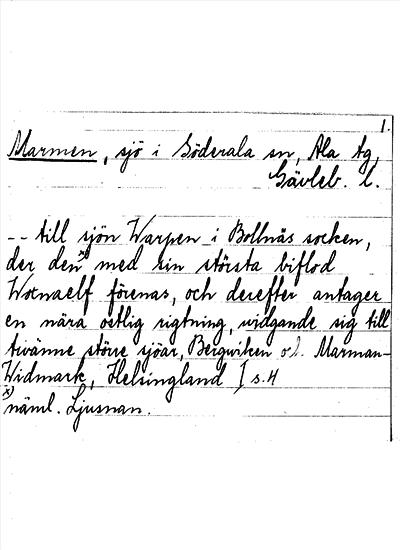 1.
Marmen, sjö i Söderala sn, Ala tg,
Gävleb. l.
-- till sjön Warpen i Bollnäs socken,
der den x) med sin största biflod
Woxnaelf förenas, och derefter antager
en nära ostlig rigtning, widgande sig till
tvänne större sjöar, Bergwiken och Marman-
Widmark, Helsingland I s. 4
x) näml. Ljusnan.